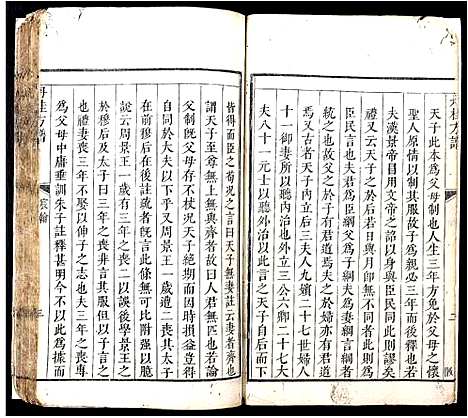 天子此本為父母制也人生三年方免於父母之懷
聖人原情以制其服故子為親必三年而後釋也若
夫漢景帝目用文帝之詔以身與臣民同此則謬矣
禮又云天子之於后若日與月即無不同者此則為
臣民言也夫君為臣綱父為子綱夫為妻綱三綱者
統之於尊也故父之於子有君道焉夫之於婦亦有君道
焉又古者天子內立后三夫人九嬪二十七世婦八
十一御妻所以聽內治也外立三公六卿二十七大
夫八十一元士以聽外治也以此言之天子自后而下
皆得而臣之荀況之言曰天子無妻註云妻者齊也
謂天子至尊上無與齊者故曰人君無匹也若論
父制既父母存不杖況天子絕期而因時損益豈得
自同於大夫以下乎又周景王一歲遭二喪其太子
前穆后在後註疏者有言此條無可比附強作
說云周景王一歲有三年之喪二以誤後學景王
於穆后三年之喪者非言其服但以子言之
也禮妻喪三年不娶以伸子之志也夫三年之喪專
為父母中庸垂訓朱子註釋甚明今不以為據而
丹桂方譜